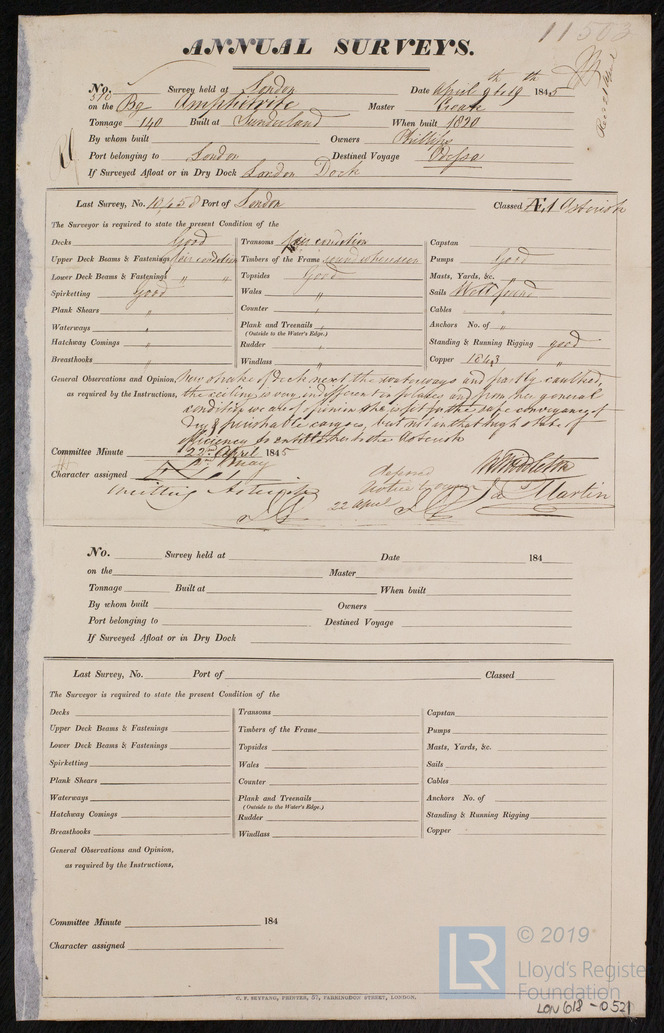 11503
ANNUAL SURVEYS.
No. Survey held at London Date April 9th & 19th 1845
on the Bg Amphitrite Master
Tonnage 140 Built at Sunderland When built 1820
By whom built Owners Phillips
Port belonging to London Destined Voyage Odessa
If Surveyed Afloat or in Dry Dock London Dock
Last Survey, No. 10,658 Port of London Classed Æ1 Asterisk
The Surveyor is required to state the present Condition of the
Decks Good Transoms fair condition Capstan
Upper Deck Beams & Fastenings fair condition Timbers of the Frame sound where seen Pumps Good
Lower Deck Beams & Fastenings " " Topsides Good Masts, Yards, &c. "
Spirketting Good Wales " Sails Well found
Plank Shears " Counter " Cables "
Waterways " Plank and Treenails " Anchors No. of "
(Outside to the Water's Edge.)
Hatchway Comings " Rudder Standing & Running Rigging good
Breasthooks " Windlass " Copper 1843 "
General Observations and Opinion, New strake of deck next the waterways and partly caulked,
as required by the Instructions, the ceiling is very indifferent in places and from her general
condition we are of opinion she is fit for the safe conveyance of
Dry & perishable cargoes, but not in that high state of
efficiency to entitle her to the Asterisk
Committee Minute 22nd April 1845
May
Character assigned
Omitting Asterisk
22 April
W Middleton
Jas Martin
No. Survey held at Date 184
on the Master
Tonnage Built at When built
By whom built Owners
Port belonging to Destined Voyage
If Surveyed Afloat or in Dry Dock
Last Survey, No. Port of Classed
The Surveyor is required to state the present Condition of the
Decks Transoms Capstan
Upper Deck Beams & Fastenings Timbers of the Frame Pumps
Lower Deck Beams & Fastenings Topsides Masts, Yards, &c.
Spirketting Wales Sails
Plank Shears Counter Cables
Waterways Plank and Treenails Anchors No. of
(Outside to the Water's Edge.)
Hatchway Comings Rudder Standing & Running Rigging
Breasthooks Windlass Copper
General Observations and Opinion,
as required by the Instructions,
Committee Minute 184
Character assigned
C. F. SEYFANG, PRINTER, 57, FARRINGDON STREET, LONDON.
LR © 2019
Lloyd's Register
Foundation
LON 618-0521